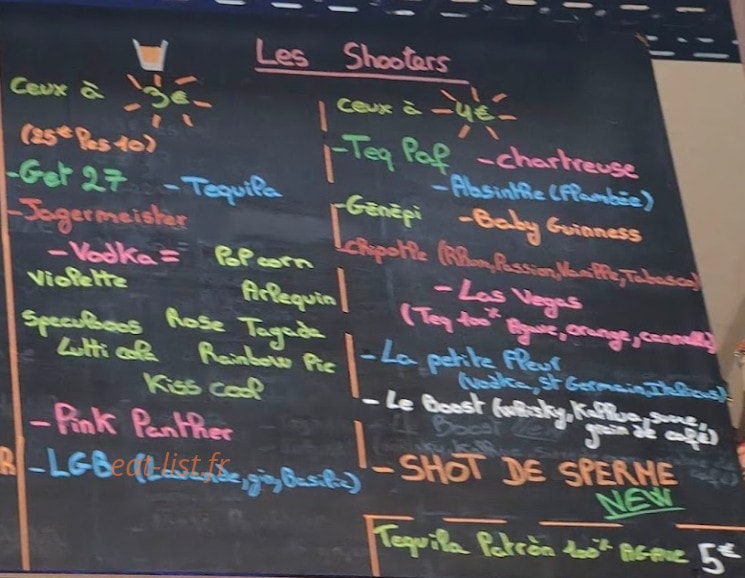 Les Shooters
Ceux à 3€
(25€ les 10)
-Get 27 -Tequila
-Jagermeister
-Vodka = Pop corn
Violette Arlequin
Speculoos Rose Tagada
Lutti cola Rainbow Pic
Kiss cool
-Pink Panther
-LGB (Lavande, gin, Basilic)
eat-list.fr
Ceux à 4€
-Teq Paf -Chartreuse
-Absinthe (Flambée)
-Génépi -Baby Guinness
-Chipotle (Rhum, Passion, Vanille, Tabasco)
-Las Vegas
(Teq 100% Agave, orange, cannelle)
-La petite Fleur
(Vodka, St Germain, Italicus)
-Le Boost (whisky, Kahlua, sucre,
grain de café)
-SHOT DE SPERME
NEW
Tequila Patrón 100% AGAVE 5€